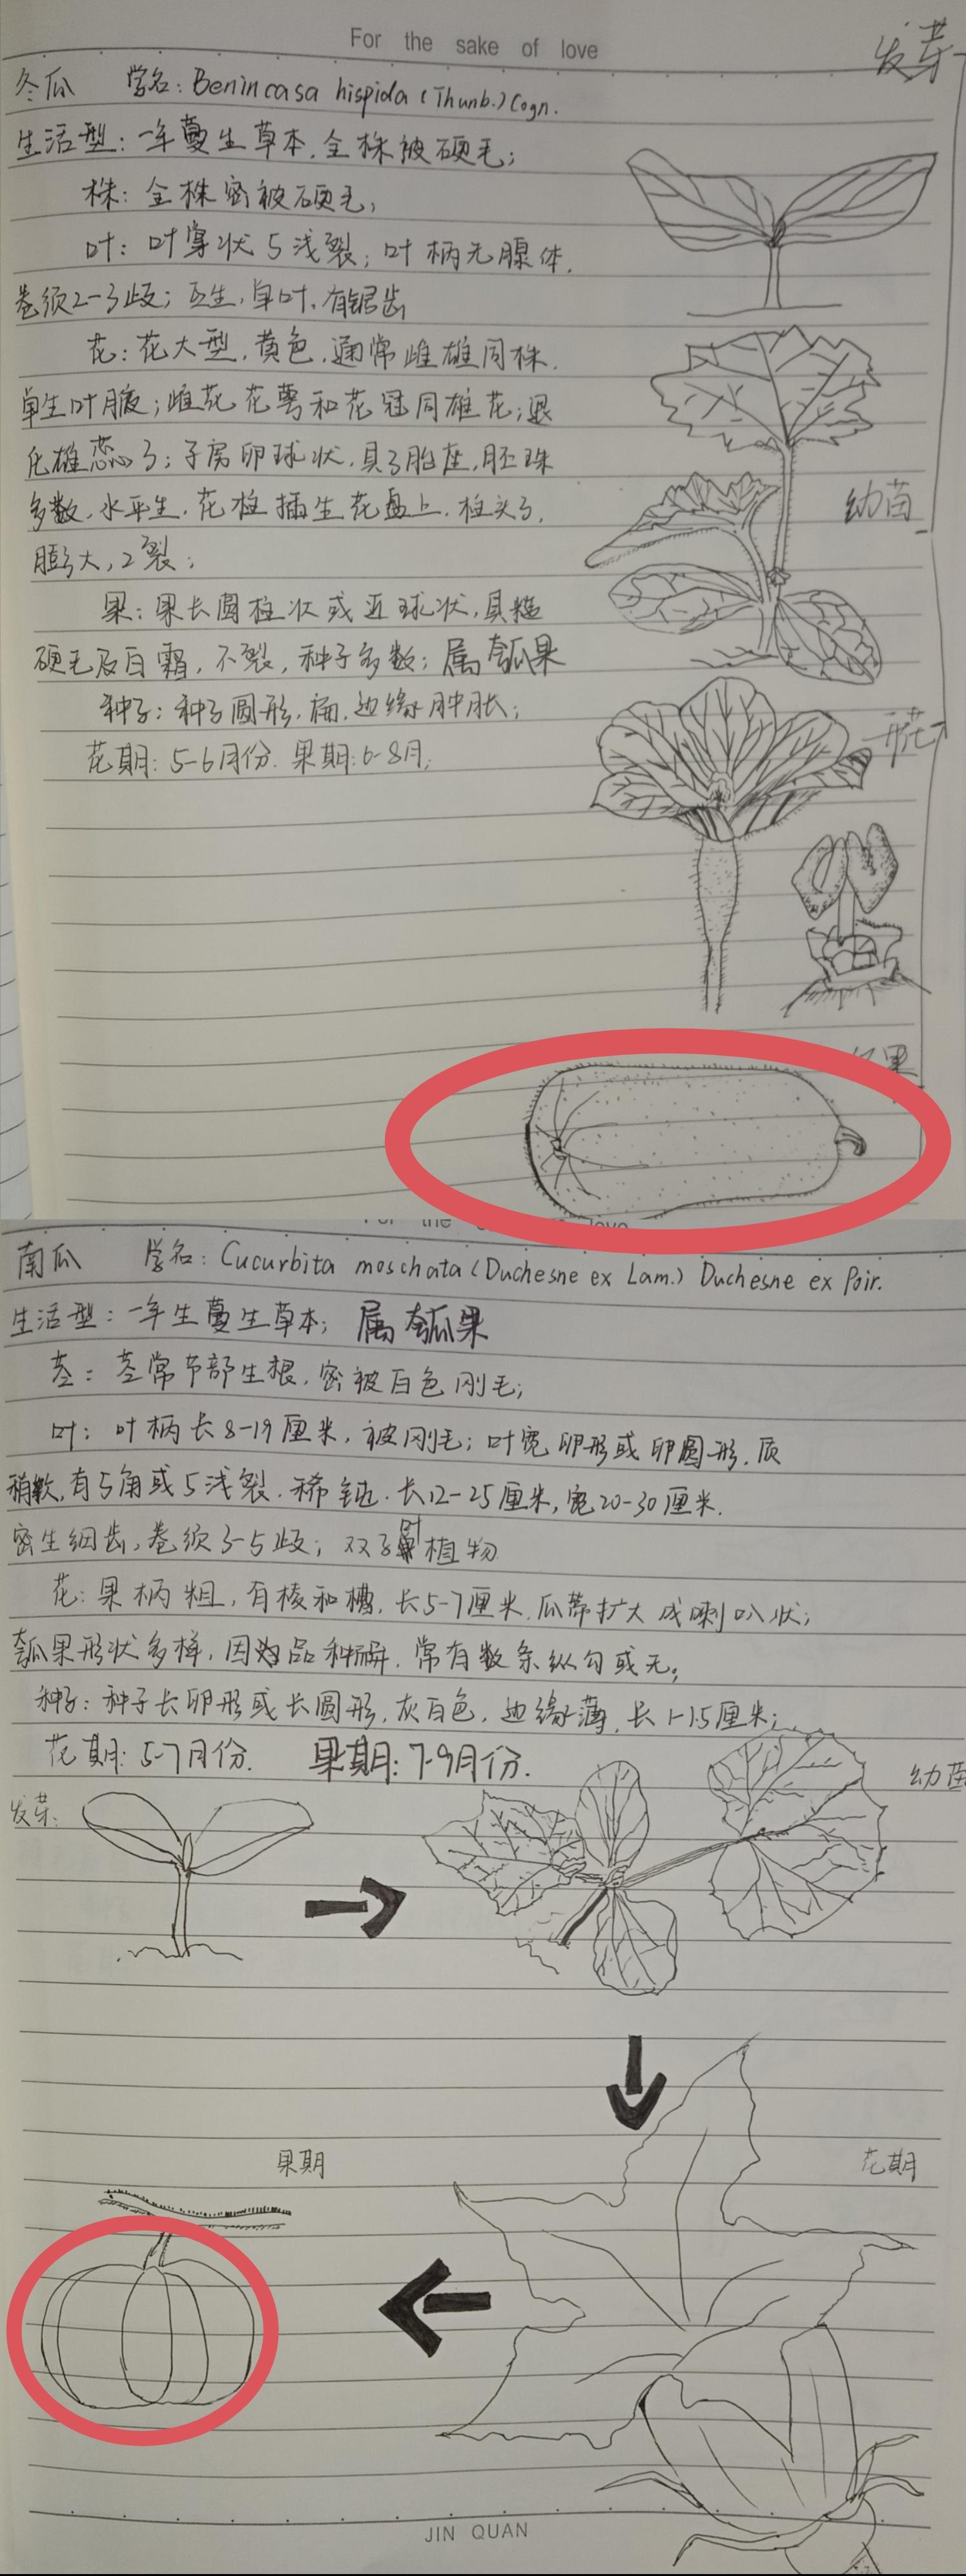 For the sake of love
发芽
冬瓜 学名: Benincasa hispida (Thunb.) Cogn.
生活型: 一年蔓生草本, 全株被硬毛;
株: 全株密被硬毛,
叶: 叶掌状5浅裂; 叶柄无腺体.
卷须2-3歧; 互生, 单叶, 有锯齿
花: 花大型, 黄色, 通常雌雄同株.
单生叶腋; 雌花花萼和花冠同雄花; 退
化雄蕊3; 子房卵球状, 具3胎座, 胚珠
多数, 水平生, 花柱插生花盘上, 柱头3,
膨大, 2裂;
幼苗
果: 果长圆柱状或近球状, 具糙
硬毛及白霜, 不裂, 种子多数; 属瓠果
种子: 种子圆形, 扁, 边缘肿胀;
花期: 5-6月份. 果期: 6-8月;
开花
果
For the love
南瓜 学名: Cucurbita moschata (Duchesne ex Lam.) Duchesne ex Poir.
生活型: 一年生蔓生草本; 属瓠果
茎: 茎常节部生根, 密被白色刚毛;
叶: 叶柄长8-19厘米, 被刚毛; 叶宽卵形或卵圆形, 质
稍软, 有5角或5浅裂. 稀钝. 长12-25厘米, 宽20-30厘米.
密生细齿, 卷须3-5歧; 双子叶植物
花: 果柄粗, 有棱和槽, 长5-7厘米, 瓜蒂扩大成喇叭状;
瓠果形状多样, 因品种而异, 常有数条纵勾或无;
种子: 种子长卵形或长圆形, 灰白色, 边缘薄, 长1-1.5厘米;
花期: 5-7月份. 果期: 7-9月份.
幼苗
发芽:
果期
花期
JIN QUAN